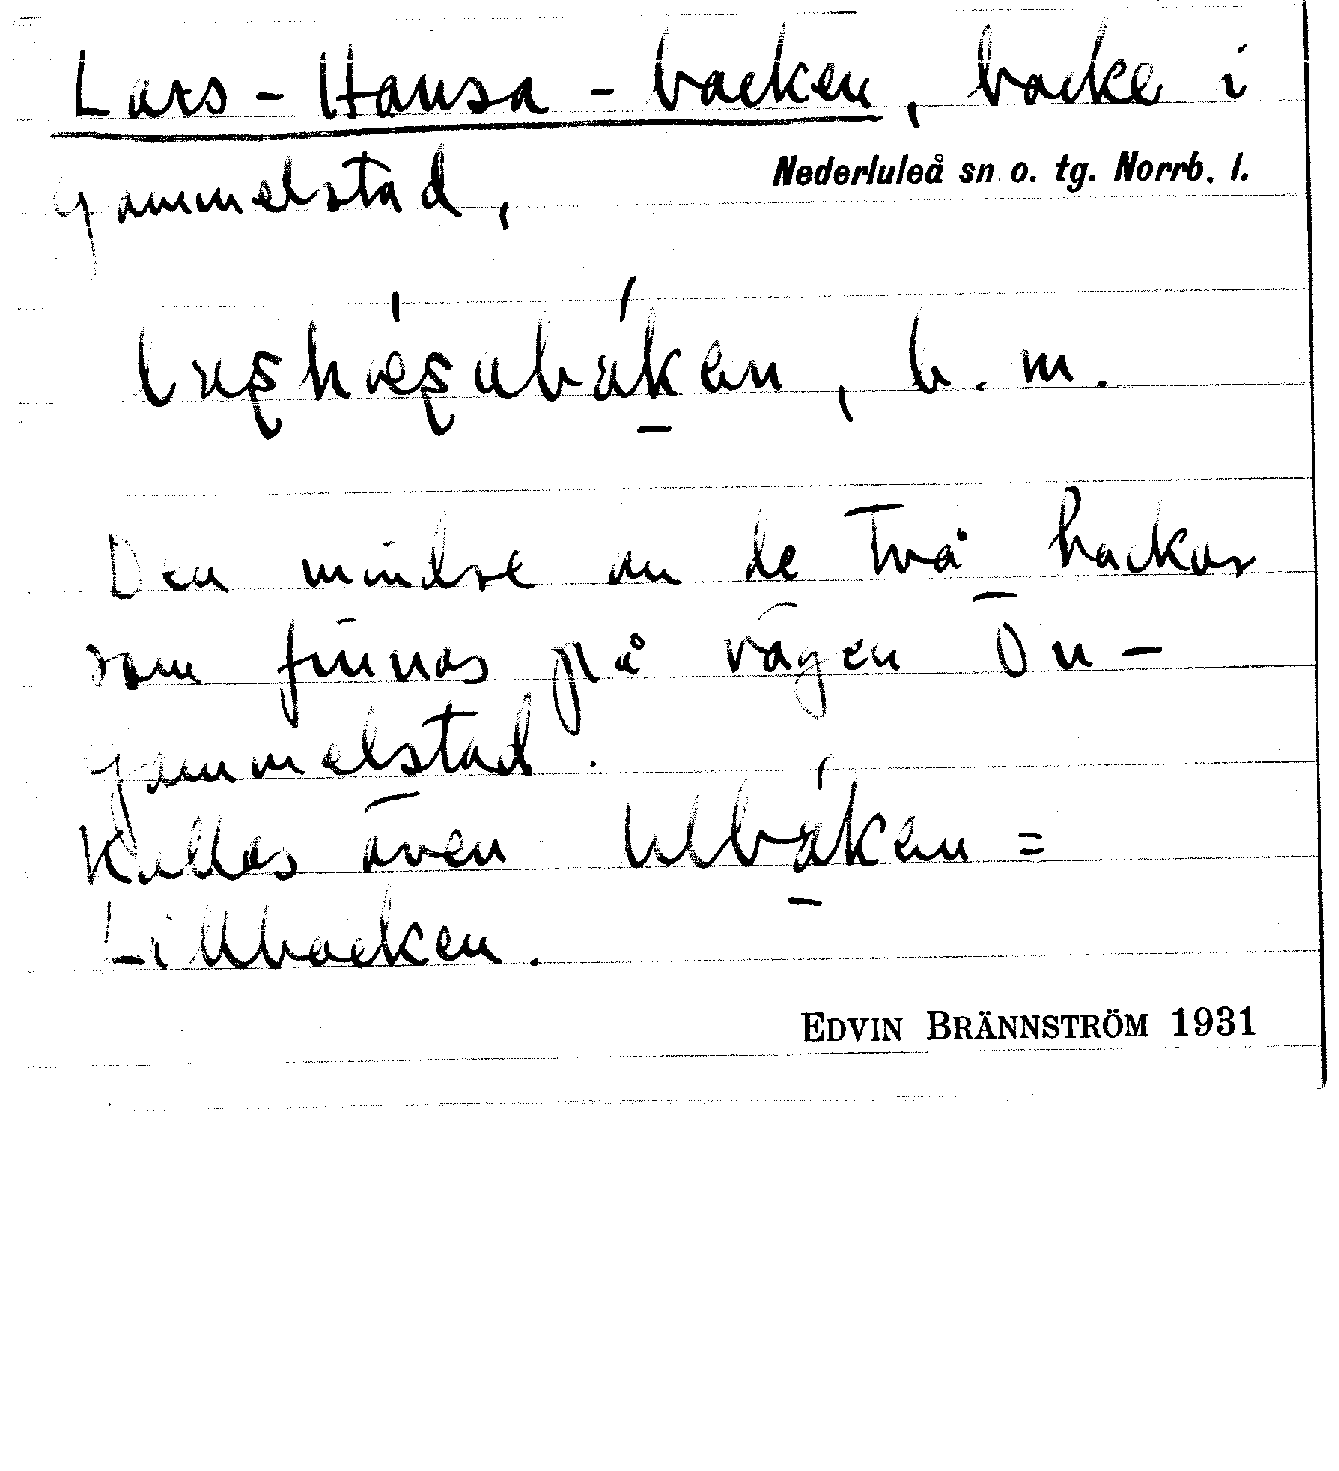 Lars-Hansa-backen, backe i
Nederluleå sn o. tg. Norrb. l.
gammelstad,
b. m.
Den mindre av de två backar
som finnas på vägen Ön-
gammelstad.
Kallas även =
Lillbacken.
EDVIN BRÄNNSTRÖM 1931